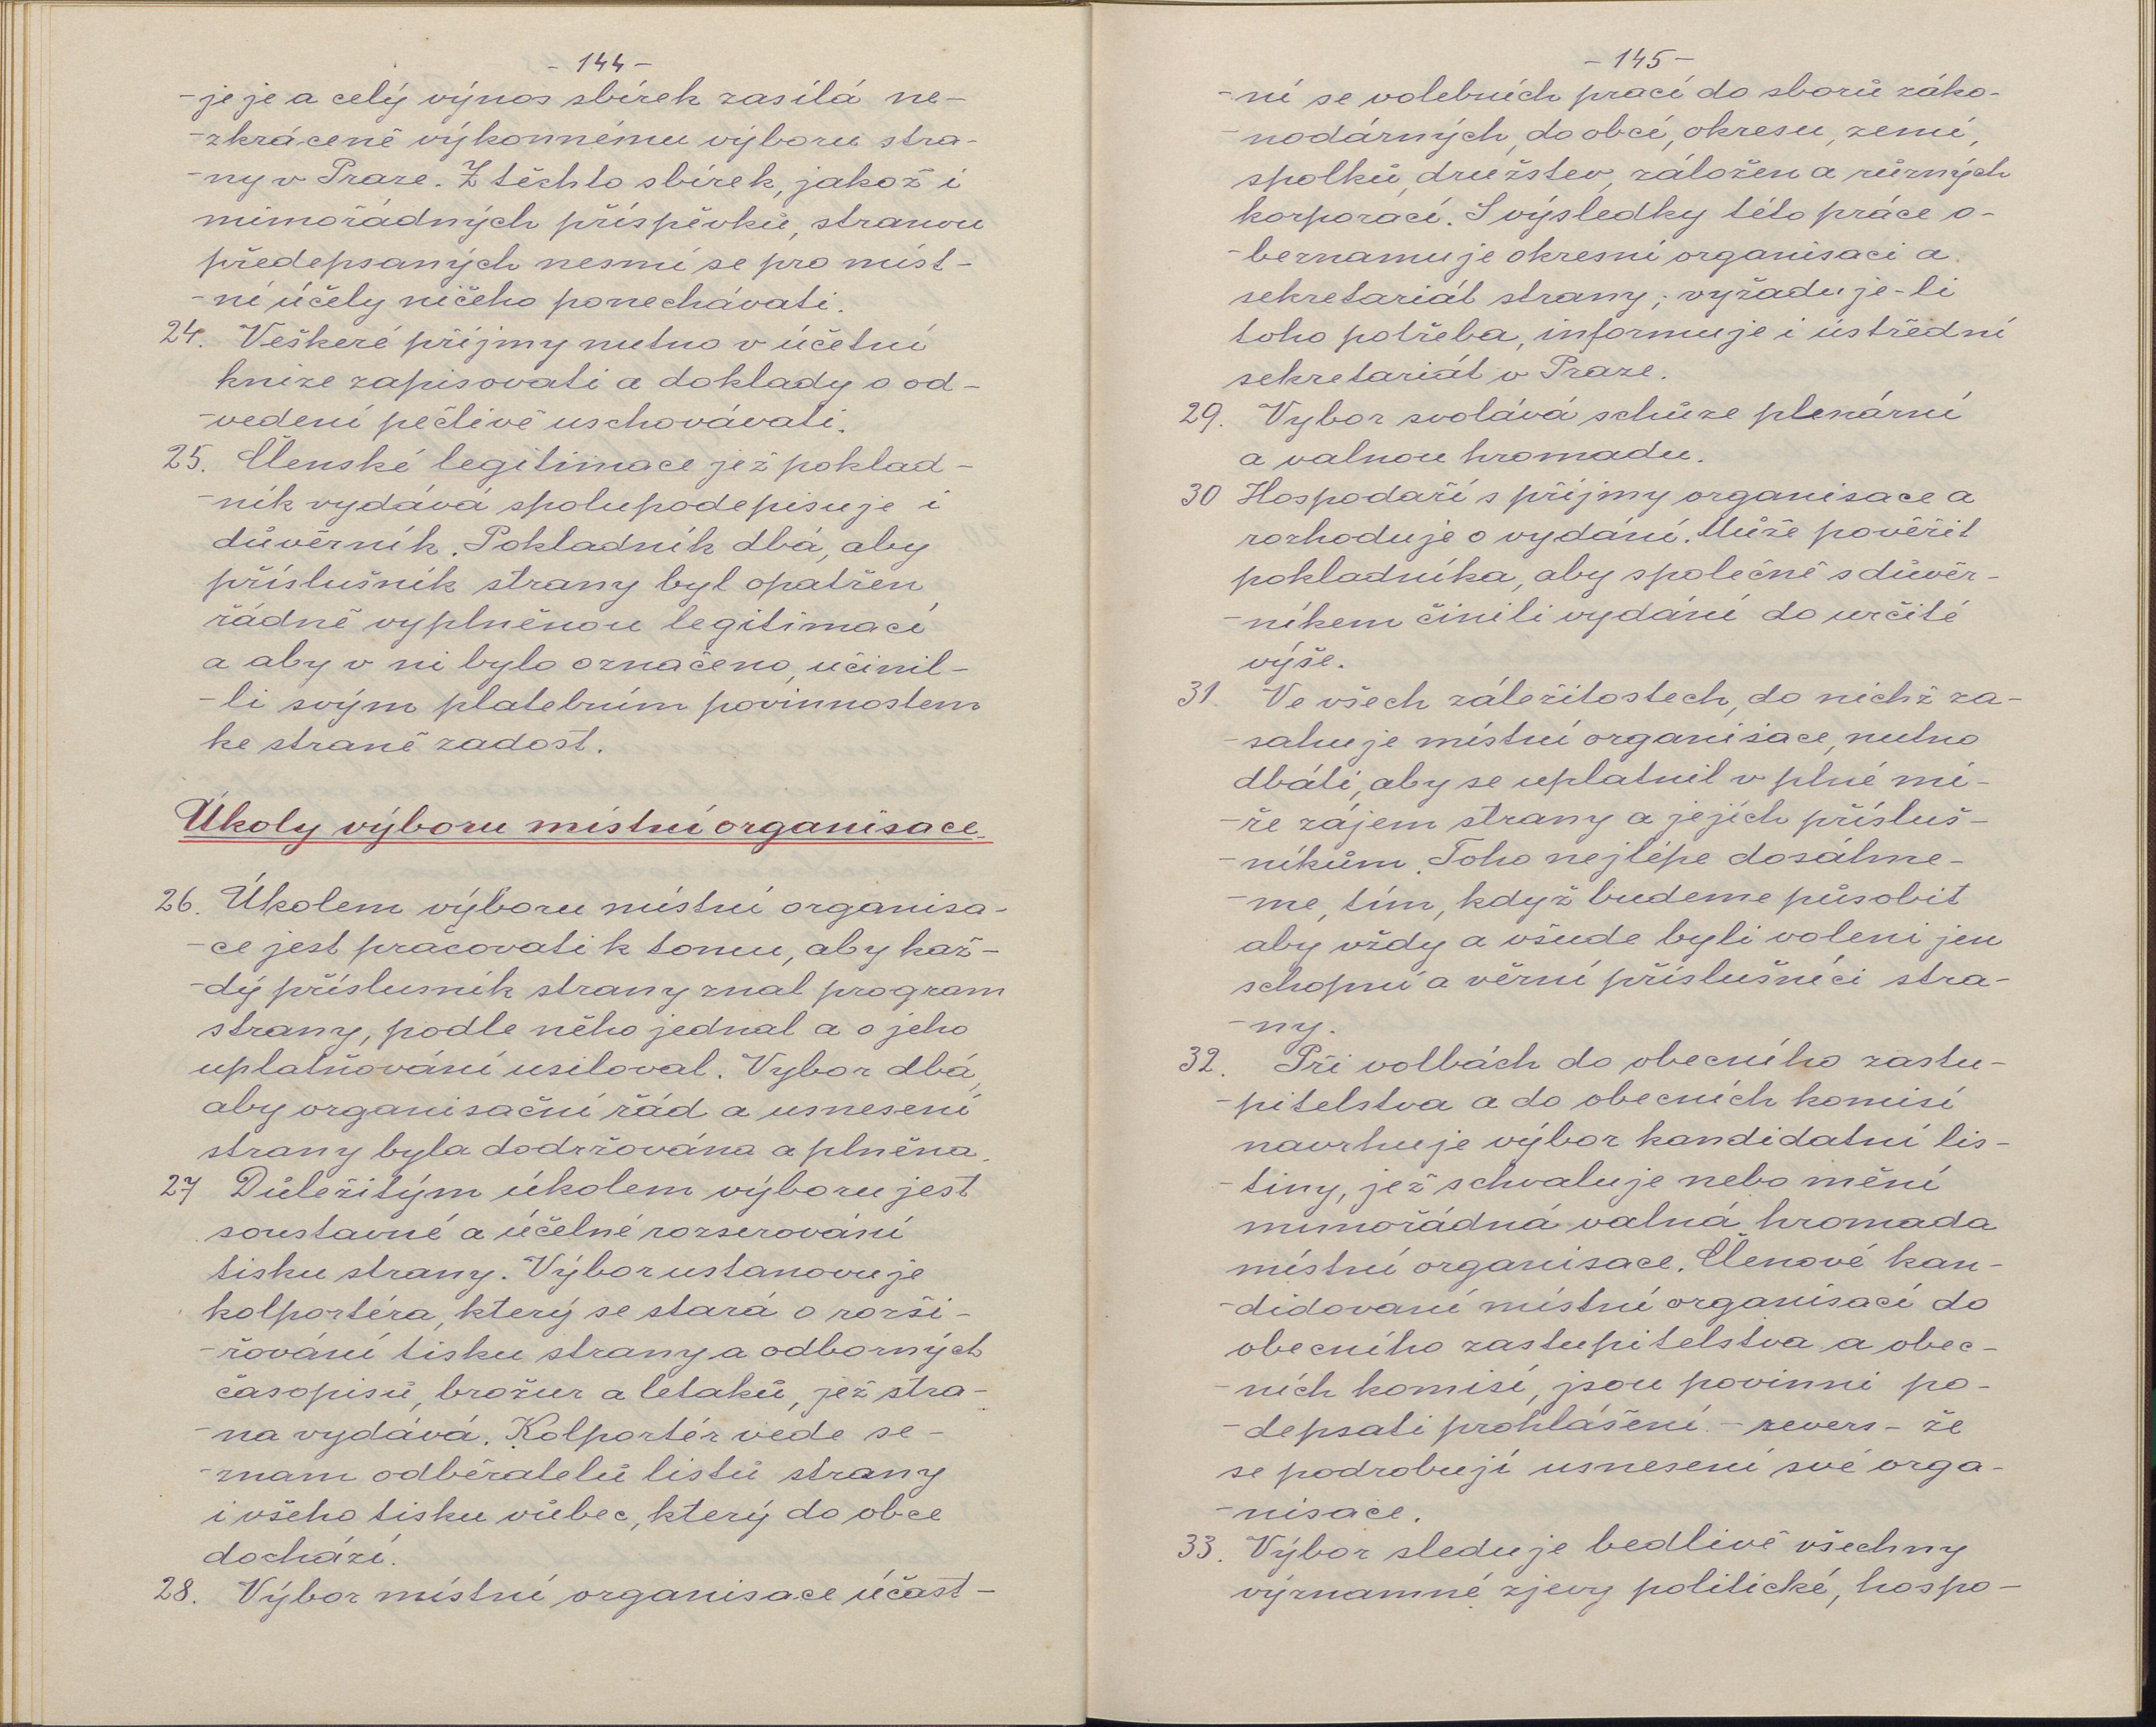 - 144 -
- je je a celý výnos sbírek zasílá ne-
- zkráceně výkonnému výboru stra-
- ny v Praze. Z těchto sbírek, jakož i
mimořádných příspěvků, stranou
předepsaných nesmí se pro míst-
- ní účely ničeho ponechávati.
24. Veškeré příjmy nutno v účetní
knize zapisovati a doklady o od-
- vedení pečlivě uschovávati.
25. Členské legitimace jež poklad-
- ník vydává spolupodepisuje i
důvěrník. Pokladník dbá, aby
příslušník strany byl opatřen
řádně vyplněnou legitimací
a aby v ní bylo označeno, učinil-
- li svým platebním povinnostem
ke straně zadost.
Úkoly výboru místní organisace.
26. Úkolem výboru místní organisa-
- ce jest pracovati k tomu, aby kaž-
- dý příslusník strany znal program
strany, podle něho jednal a o jeho
uplatňování usiloval. Vybor dbá,
aby organisační řád a usnesení
strany byla dodržována a plněna.
27 Důležitým úkolem výboru jest
soustavné a účelné rozserování
tisku strany. Výbor ustanovuje
kolportéra, který se stará o rozši-
- řování tisku strany a odborných
časopisů, brožur a letaků, jež stra-
- na vydává. Kolportér vede se-
- znam odběratelů listů strany
i všeho tisku vůbec, který do obce
dochází.
28. Výbor místní organisace účast-
- 145 -
- ní se volebních prací do sborů záko-
- nodárných, do obcí, okresu, zemí,
spolků, družstev, záložen a různých
korporací. S výsledky této práce o-
- beznamuje okresní organisaci a
sekretariát strany; vyžaduje-li
toho potřeba, informuje i ústřední
sekretariát v Praze.
29. Vybor svolává schůze plenární
a valnou hromadu.
30 Hospodaří s příjmy organisace a
rozhoduje o vydání. Může pověřit
pokladníka, aby společně s důvěr-
- níkem činili vydání do určité
výše.
31 Ve všech záležitostech, do nichž za-
- sahuje místní organisace, nutno
dbáti, aby se uplatnil v plné mí-
- ře zájem strany a jejích přísluš-
- níkům. Toho nejlépe dosáhne-
- me, tím, když budeme působit
aby vždy a všude byli voleni jen
schopní a věrní příslušníci stra-
- ny.
32. Při volbách do obecního zastu-
- pitelstva a do obecních komisí
navrhuje výbor kandidatní lis-
- tiny, jež schvaluje nebo mění
mimořádná valná hromada
místní organisace. Členové kan-
- didovaní místní organisací do
obecního zastupitelstva a obec-
- ních komisí, jsou povinni po-
- depsati prohlášení - revers - že
se podrobují usnesení své orga-
- nisace.
33. Výbor sleduje bedlivě všechny
významné zjevy politické, hospo-